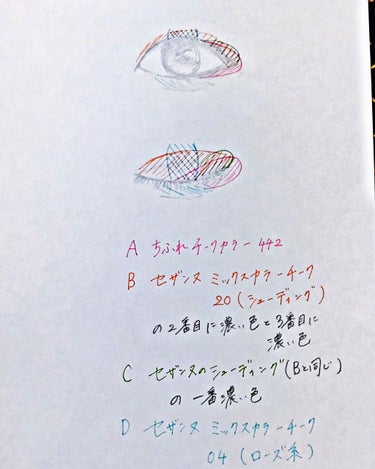 A ちふれ チークカラー 442
B セザンヌ ミックスカラーチーク
20(シェーディング)
の2番目に濃い色と3番目に
濃い色
C セザンヌのシェーディング(Bと同じ)
の 一番濃い色
D セザンヌ ミックスカラーチーク
04(ローズ系)